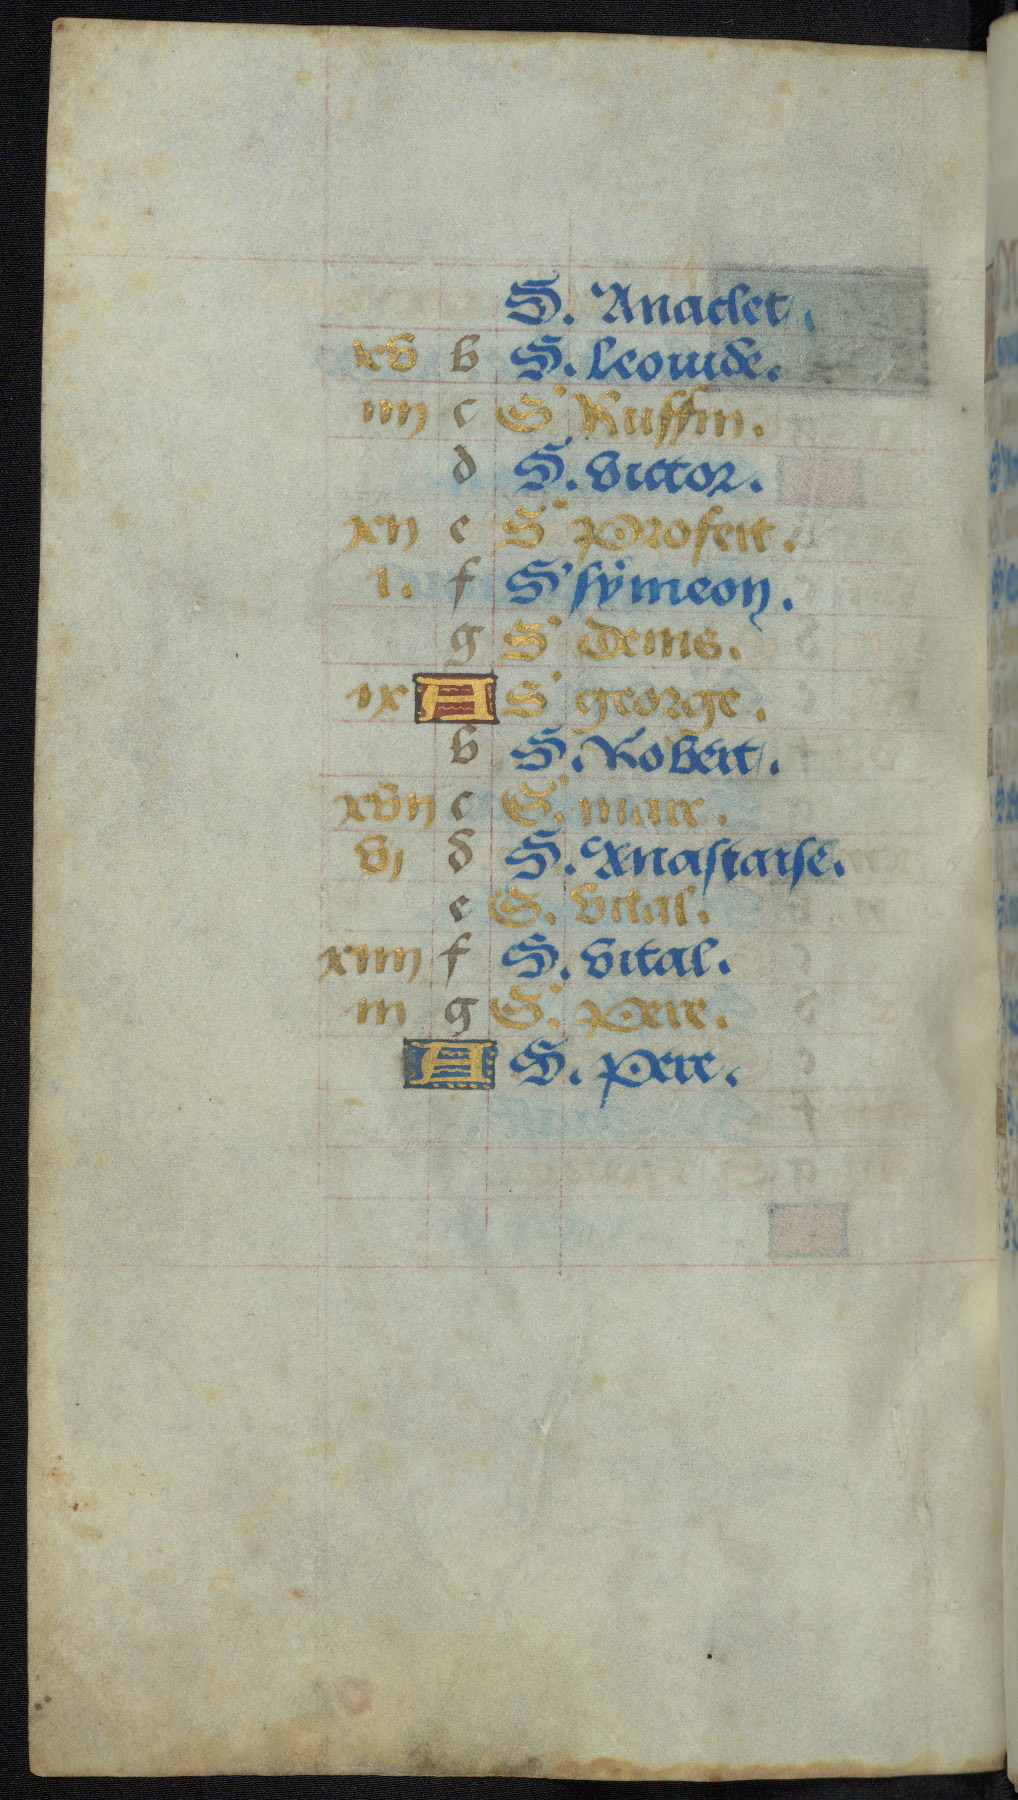 S. Anaclet.
xv b S. Leonide.
iiij c S' Ruffin.
d S. victor.
xij e S' Profeit.
i. f S' sÿmeon.
g S' Denis.
ix A S' george.
b S. Robert.
xvij c S. marc.
vj d S. Anastaise.
e S. vital.
xiiij f S. vital.
iij g S. pere.
A S. pere.